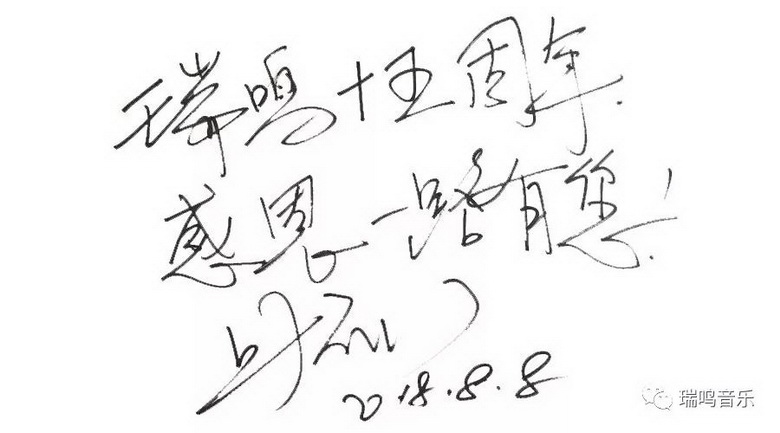 瑞鸣十五周年.
感恩一路有您!
叶云川
2018.8.8
瑞鸣音乐